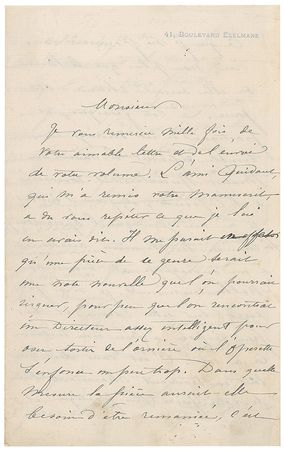 41, BOULEVARD EXELMANS
Monsieur
Je vous remercie mille fois de
votre aimable lettre et de l'envoi
de votre volume. L'ami Guidant,
qui m'a remis votre Manuscrit,
a du vous repéter ce que je lui
en avais dit. Il me parait en effet
qu'une pièce de ce genre serait
une note nouvelle que l'on pourrait
risquer, pour peu que l'on rencontrât
un Directeur assez intelligent pour
oser sortir de l'ornière où l'Opérette
s'enfonce un peu trop. Dans quelle
mesure la pièce aurait-elle
besoin d'être remaniée, c'est